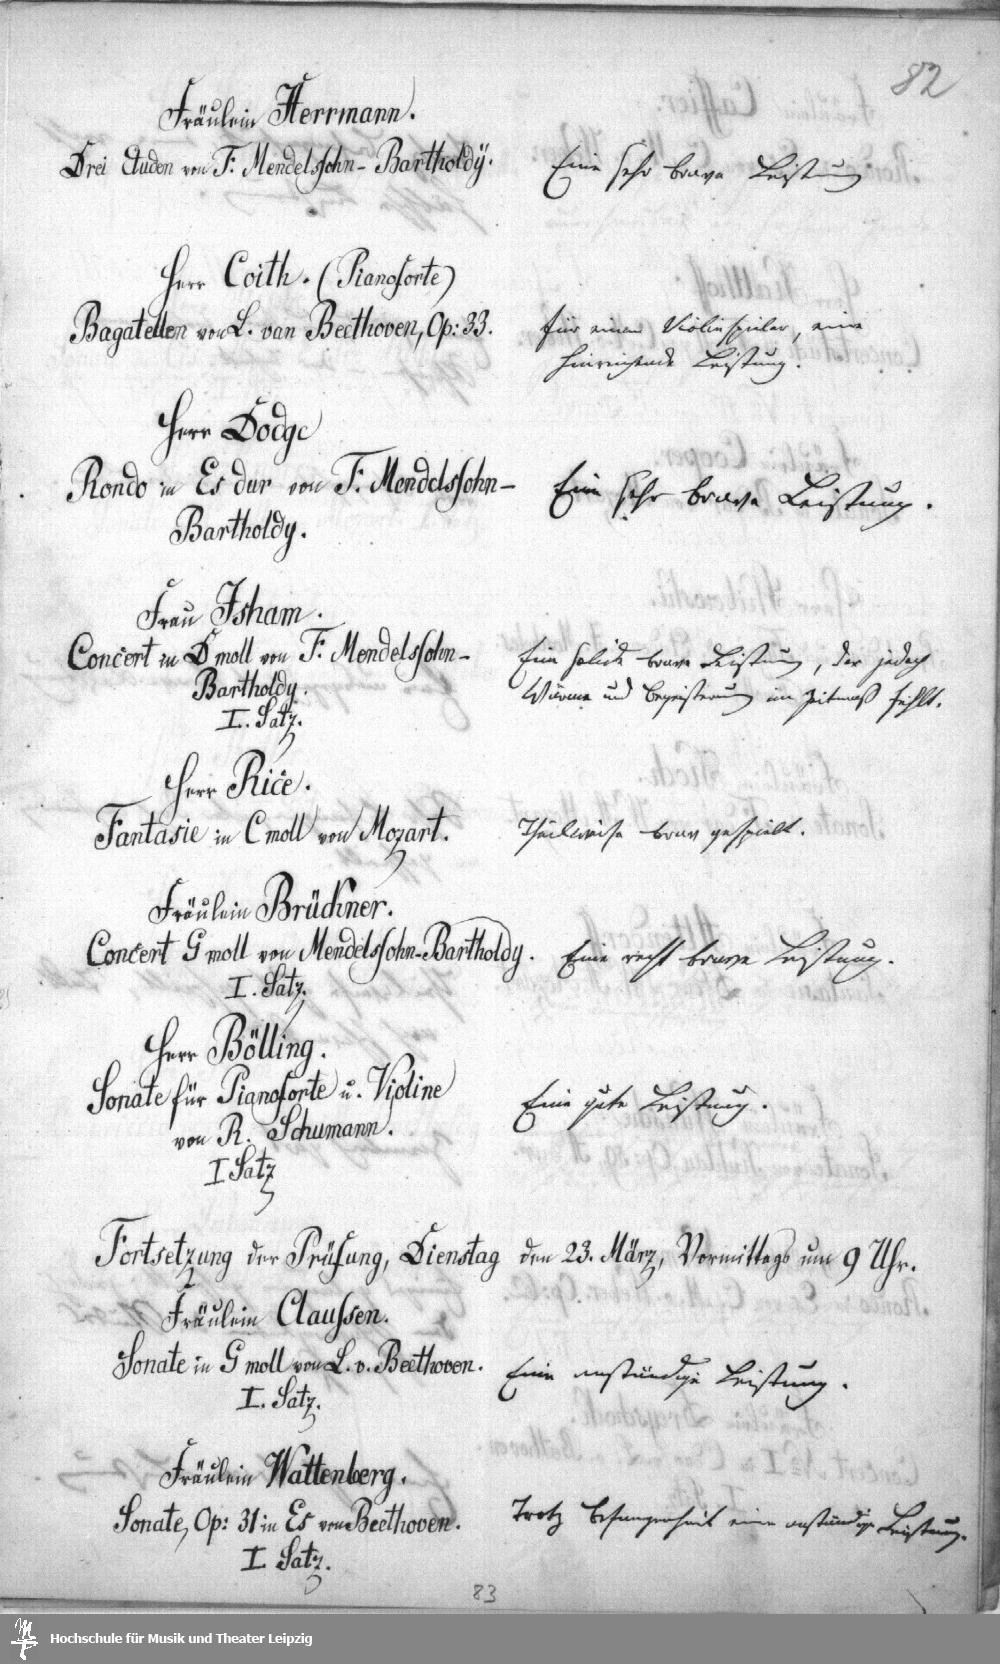 82
Fräulein Herrmann.
Drei Etuden von F. Mendelssohn-Bartholdÿ.
Eine sehr brave Leistung
Herr Coith. (Pianoforte)
Bagatellen von L. van Beethoven, Op: 33.
Für einen Violinspieler, eine
hinreichende Leistung.
Herr Dodge
Rondo in Es dur von F. Mendelssohn-
Bartholdy.
Eine sehr brave Leistung.
Frau Isham.
Concert in D moll von F. Mendelssohn-
Bartholdy.
I. Satz.
Eine solide brave Leistung, der jedoch
Wärme und Begeisterung im Zeitmaß fehlt.
Herr Rice.
Fantasie in C moll von Mozart.
Theilweise brav gespielt.
Fräulein Brückner.
Concert G moll von Mendelssohn-Bartholdy.
I. Satz.
Eine recht brave Leistung.
Herr Bölling.
Sonate für Pianoforte u. Violine
von R. Schumann.
I Satz
Eine gute Leistung.
Fortsetzung der Prüfung, Dienstag den 23. März, Vormittags um 9 Uhr.
Fräulein Claussen.
Sonate in G moll von L. v. Beethoven.
I. Satz.
Eine anständige Leistung.
Fräulein Wattenberg.
Sonate, Op: 31 in Es von Beethoven.
I. Satz.
Trotz Befangenheit eine anständige Leistung.
83
Hochschule für Musik und Theater Leipzig